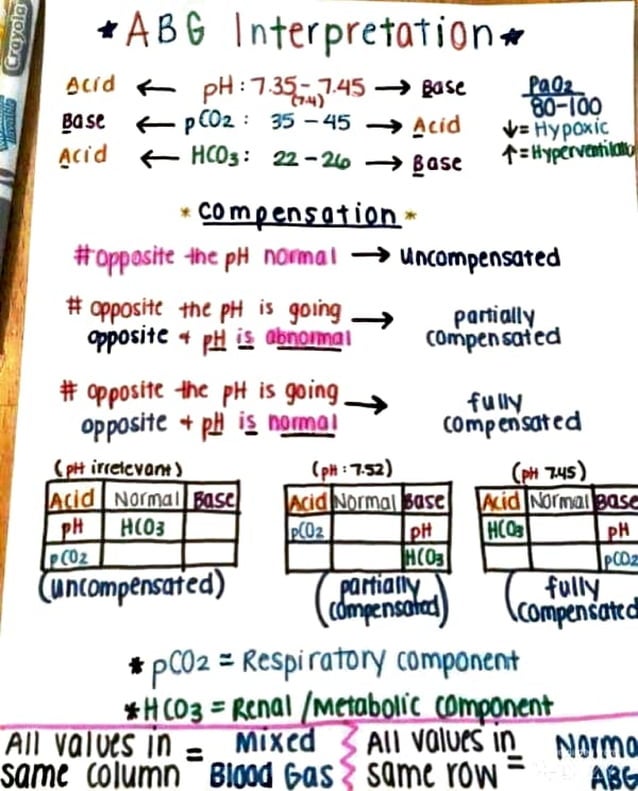 Crayola
*ABG Interpretation*
Acid ← pH: 7.35-7.45 → Base
(7.4)
Base ← pCO2: 35-45 → Acid
Acid ← HCO3: 22-26 → Base
PaO2
80-100
↓= Hypoxic
↑= Hyperventilatio
*Compensation*
#opposite the pH normal → uncompensated
# opposite the pH is going
opposite + pH is abnormal → partially
compensated
# opposite the pH is going
opposite + pH is normal → fully
compensated
(pH irrelevant)
Acid Normal Base
pH HCO3
pCO2
(uncompensated)
(pH: 7.52)
Acid Normal Base
pCO2 pH
HCO3
(partially
compensated)
(pH 7.45)
Acid Normal Base
HCO3 pH
pCO2
(fully
compensated
*pCO2 = Respiratory component
*HCO3 = Renal/Metabolic component
All values in
same column = Mixed
Blood Gas
All values in
same row = Norma
ABG